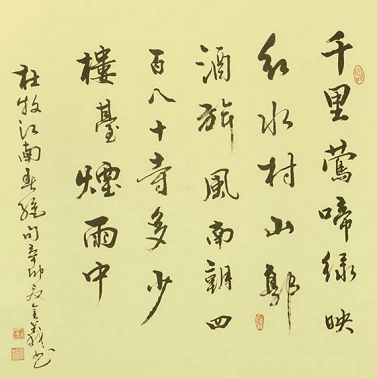 千里鶯啼绿映
红水村山郭
酒旂風南朝四
百八十寺多少
樓臺煙雨中
杜牧江南春绝句辛卯夏書